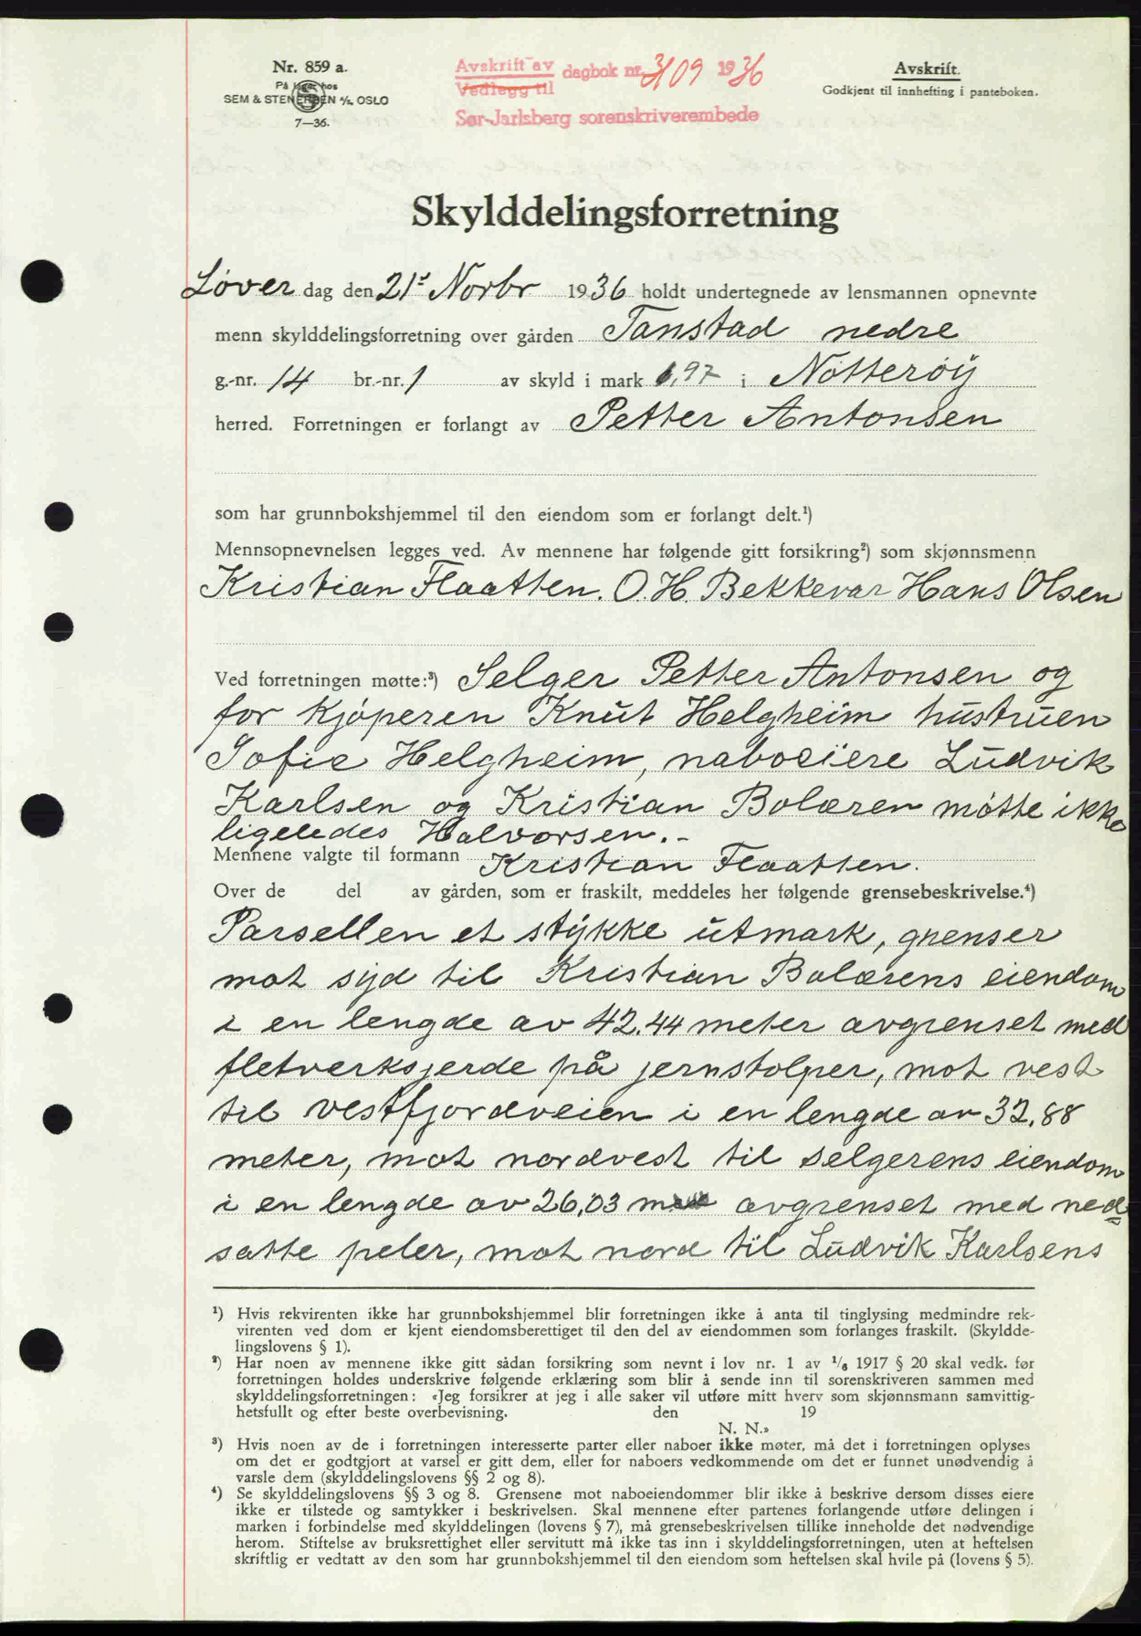 Nr. 859 a.
På lager hos
SEM & STENERSEN A/S, OSLO
7—36.
Avskrift av
Vedlegg til
dagbok nr. 3109 1936
Sør-Jarlsberg sorenskriverembede
Avskrift.
Godkjent til innhefting i panteboken.
Skylddelingsforretning
Løver dag den 21s Novbr 1936 holdt undertegnede av lensmannen opnevnte
menn skylddelingsforretning over gården Tanstad nedre
g.-nr. 14 br.-nr. 1 av skyld i mark 6,97 i Nøtterøy
herred. Forretningen er forlangt av Petter Antonsen
som har grunnbokshjemmel til den eiendom som er forlangt delt.¹)
Mennsopnevnelsen legges ved. Av mennene har følgende gitt forsikring²) som skjønnsmenn
Kristian Flaatten. O. H. Bekkevar Hans Olsen
Ved forretningen møtte:³) Selger Petter Antonsen og
for kjøperen Knut Helgheim hustruen
Sofie Helgheim, naboeiere Ludvik
Karlsen og Kristian Bolæren møtte ikke
ligeledes Halvorsen.-
Mennene valgte til formann Kristian Flaatten.
Over de del av gården, som er fraskilt, meddeles her følgende grensebeskrivelse.⁴)
Parsellen et stykke utmark, grenser
mot syd til Kristian Bolærens eiendom
i en lengde av 42.44 meter avgrenset med
fletverksjerde på jernstolper, mot vest
til vestfjordveien i en lengde av 32,88
meter, mot nordvest til selgerens eiendom
i en lengde av 26,03 m avgrenset med ned=
satte peler, mot nord til Ludvik Karlsens
¹) Hvis rekvirenten ikke har grunnbokshjemmel blir forretningen ikke å anta til tinglysing medmindre rek-
virenten ved dom er kjent eiendomsberettiget til den del av eiendommen som forlanges fraskilt. (Skyldde-
lingslovens § 1).
²) Har noen av mennene ikke gitt sådan forsikring som nevnt i lov nr. 1 av 1/6 1917 § 20 skal vedk. før
forretningen holdes underskrive følgende erklæring som blir å sende inn til sorenskriveren sammen med
skylddelingsforretningen: «Jeg forsikrer at jeg i alle saker vil utføre mitt hverv som skjønnsmann samvittig-
hetsfullt og efter beste overbevisning. den 19
N. N.»
³) Hvis noen av de i forretningen interesserte parter eller naboer ikke møter, må det i forretningen oplyses
om det er godtgjort at varsel er gitt dem, eller for naboers vedkommende om det er funnet unødvendig å
varsle dem (skylddelingslovens §§ 2 og 8).
⁴) Se skylddelingslovens §§ 3 og 8. Grensene mot naboeiendommer blir ikke å beskrive dersom disses eiere
ikke er tilstede og samtykker i beskrivelsen. Skal mennene efter partenes forlangende utføre delingen i
marken i forbindelse med skylddelingen (lovens § 7), må grensebeskrivelsen tillike inneholde det nødvendige
herom. Stiftelse av bruksrettighet eller servitutt må ikke tas inn i skylddelingsforretningen, uten at heftelsen
skriftlig er vedtatt av den som har grunnbokshjemmel til den eiendom som heftelsen skal hvile på (lovens § 5).